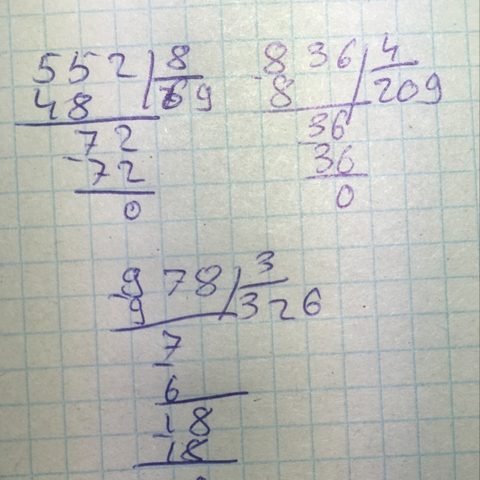 552 | 8
48 | 69
-72
72
0
-836 | 4
8 | 209
-36
36
0
-978 | 3
9 | 326
-7
6
-18
18
0